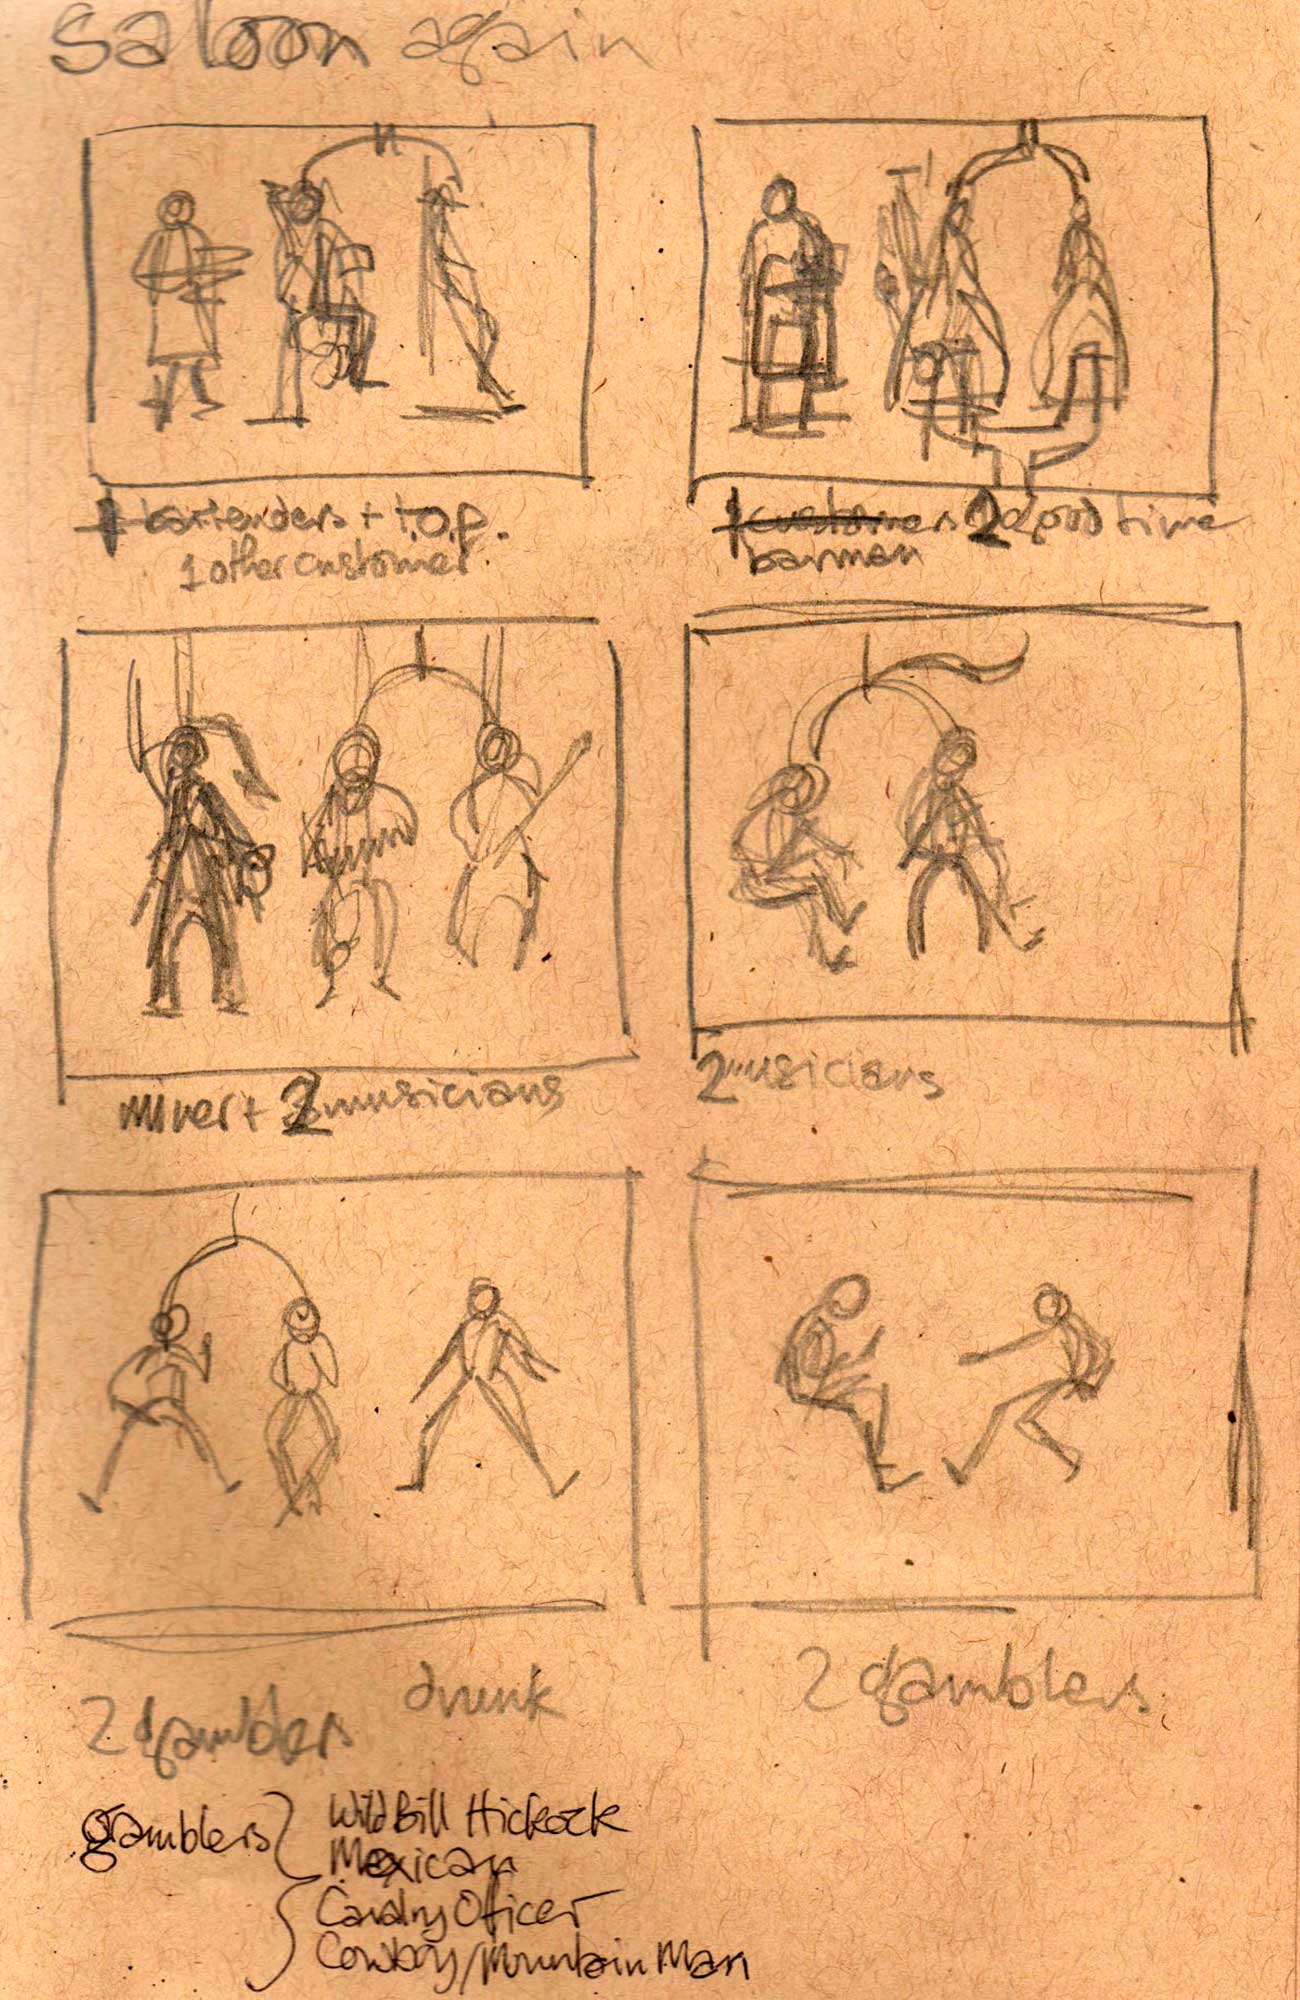 saloon again
1 bartenders + t.o.p.
1 other customer
1 customers 2 good time
barman
miner + 2 musicians
2 musicians
2 gamblers drunk
2 gamblers
gamblers { Wild Bill Hickock
Mexican
Cavalry Officer
Cowboy/Mountain Man